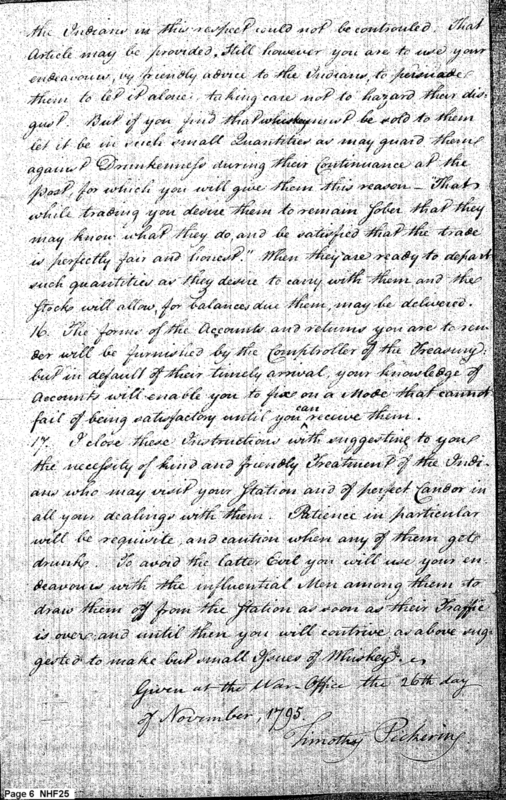 the Indians in this respect could not be controuled. That
Article may be provided. Still however you are to use your
endeavours, by friendly advice to the Indians, to persuade
them to let it alone; taking care not to hazard their dis-
gust. But if you find that whiskey must be sold to them
let it be in such small Quantities as may guard them
against Drunkenness during their Continuance at the
Post, for which you will give them this reason — That
while trading you desire them to remain Sober that they
may know what they do, and be satisfied that the trade
is perfectly fair and honest." When they are ready to depart
such quantities as they desire to carry with them and the
Stocks will allow, for balances due them, may be delivered.
16. The forms of the Accounts and returns you are to ren-
der will be furnished by the Comptroller of the Treasury;
but in default of their timely arrival, your knowledge of
Accounts will enable you to fix on a Mode that cannot
fail of being satisfactory until you can receive them.
17. I close these Instructions with suggesting to you
the necessity of kind and friendly Treatment of the Indi-
ans who may visit your Station and of perfect Candor in
all your dealings with them. Patience in particular
will be requisite, and caution when any of them get
drunk. To avoid the latter Evil you will use your en-
deavours with the influential Men among them to
draw them off from the Station as soon as their Traffic
is over, and until then you will contrive, as above sug-
gested to make but small Issues of Whiskey.
Given at the War Office the 26th day
of November, 1795.
Timothy Pickering
Page 6 NHF25